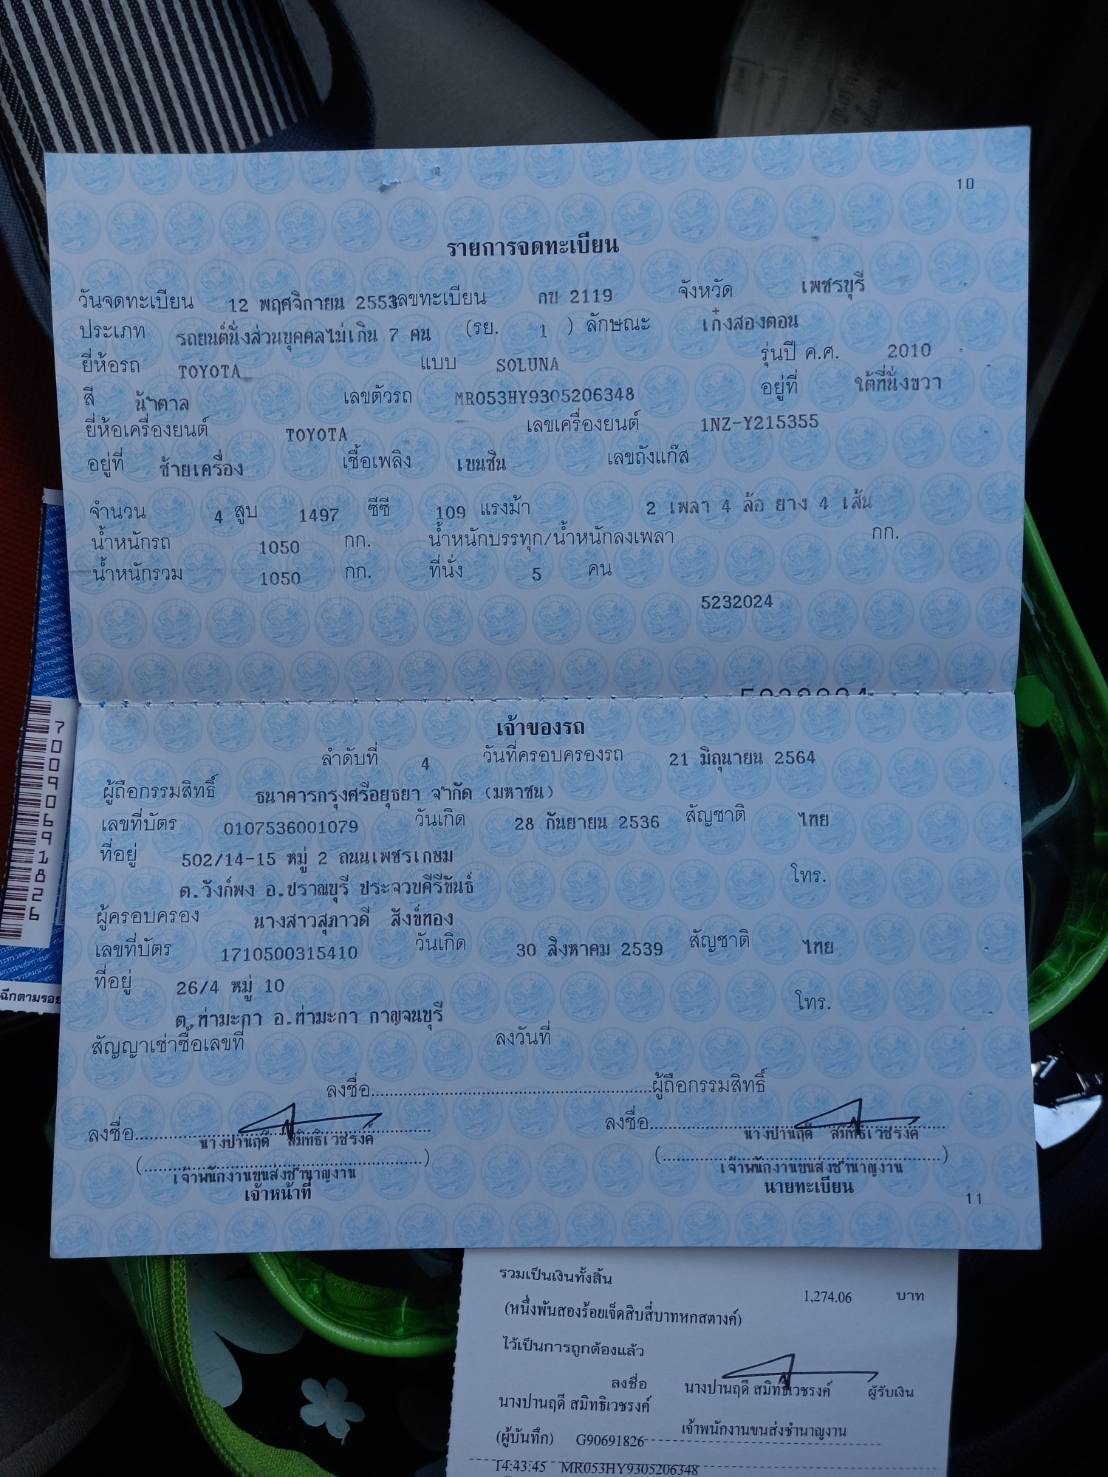 10
รายการจดทะเบียน
วันจดทะเบียน 12 พฤศจิกายน 2553 เลขทะเบียน กข 2119 จังหวัด เพชรบุรี
ประเภท รถยนต์นั่งส่วนบุคคลไม่เกิน 7 คน (รย. 1 ) ลักษณะ เก๋งสองตอน
ยี่ห้อรถ TOYOTA แบบ SOLUNA รุ่นปี ค.ศ. 2010
สี น้ำตาล เลขตัวรถ MR053HY9305206348 อยู่ที่ ใต้ที่นั่งขวา
ยี่ห้อเครื่องยนต์ TOYOTA เลขเครื่องยนต์ 1NZ-Y215355
อยู่ที่ ซ้ายเครื่อง เชื้อเพลิง เบนซิน เลขถังแก๊ส
จำนวน 4 สูบ 1497 ซีซี 109 แรงม้า 2 เพลา 4 ล้อ ยาง 4 เส้น
น้ำหนักรถ 1050 กก. น้ำหนักบรรทุก/น้ำหนักลงเพลา กก.
น้ำหนักรวม 1050 กก. ที่นั่ง 5 คน
5232024
เจ้าของรถ
ลำดับที่ 4 วันที่ครอบครองรถ 21 มิถุนายน 2564
ผู้ถือกรรมสิทธิ์ ธนาคารกรุงศรีอยุธยา จำกัด (มหาชน)
เลขที่บัตร 0107536001079 วันเกิด 28 กันยายน 2536 สัญชาติ ไทย
ที่อยู่ 502/14-15 หมู่ 2 ถนนเพชรเกษม
ต.วังก์พง อ.ปราณบุรี ประจวบคีรีขันธ์ โทร.
ผู้ครอบครอง นางสาวสุภาวดี สังข์ทอง
เลขที่บัตร 1710500315410 วันเกิด 30 สิงหาคม 2539 สัญชาติ ไทย
ที่อยู่ 26/4 หมู่ 10
ต.ท่ามะกา อ.ท่ามะกา กาญจนบุรี โทร.
สัญญาเช่าซื้อเลขที่ ลงวันที่
ลงชื่อ..........ผู้ถือกรรมสิทธิ์
ลงชื่อ.......... ลงชื่อ..........
นางปานฤดี สมิทธิเวชรงค์ นางปานฤดี สมิทธิเวชรงค์
(..........) (..........)
เจ้าพนักงานขนส่งชำนาญงาน เจ้าพนักงานขนส่งชำนาญงาน
เจ้าหน้าที่ นายทะเบียน
11
7009069182 6
ฉีกตามรอย
รวมเป็นเงินทั้งสิ้น 1,274.06 บาท
(หนึ่งพันสองร้อยเจ็ดสิบสี่บาทหกสตางค์)
ไว้เป็นการถูกต้องแล้ว
ลงชื่อ นางปานฤดี สมิทธิเวชรงค์ ผู้รับเงิน
นางปานฤดี สมิทธิเวชรงค์
(ผู้บันทึก) G90691826 เจ้าพนักงานขนส่งชำนาญงาน
14:43:45 MR053HY9305206348